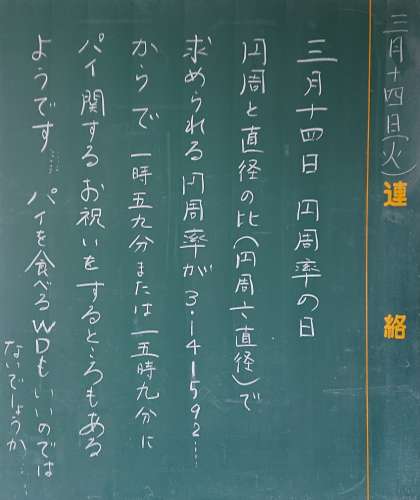 三月十四日(火)
連絡
三月十四日 円周率の日
円周と直径の比(円周÷直径)で
求められる円周率が3.141592……
からで 一時五九分または一五時九分に
パイ関するお祝いをするところもある
ようです…… パイを食べるWDもいいのでは
ないでしょうか……